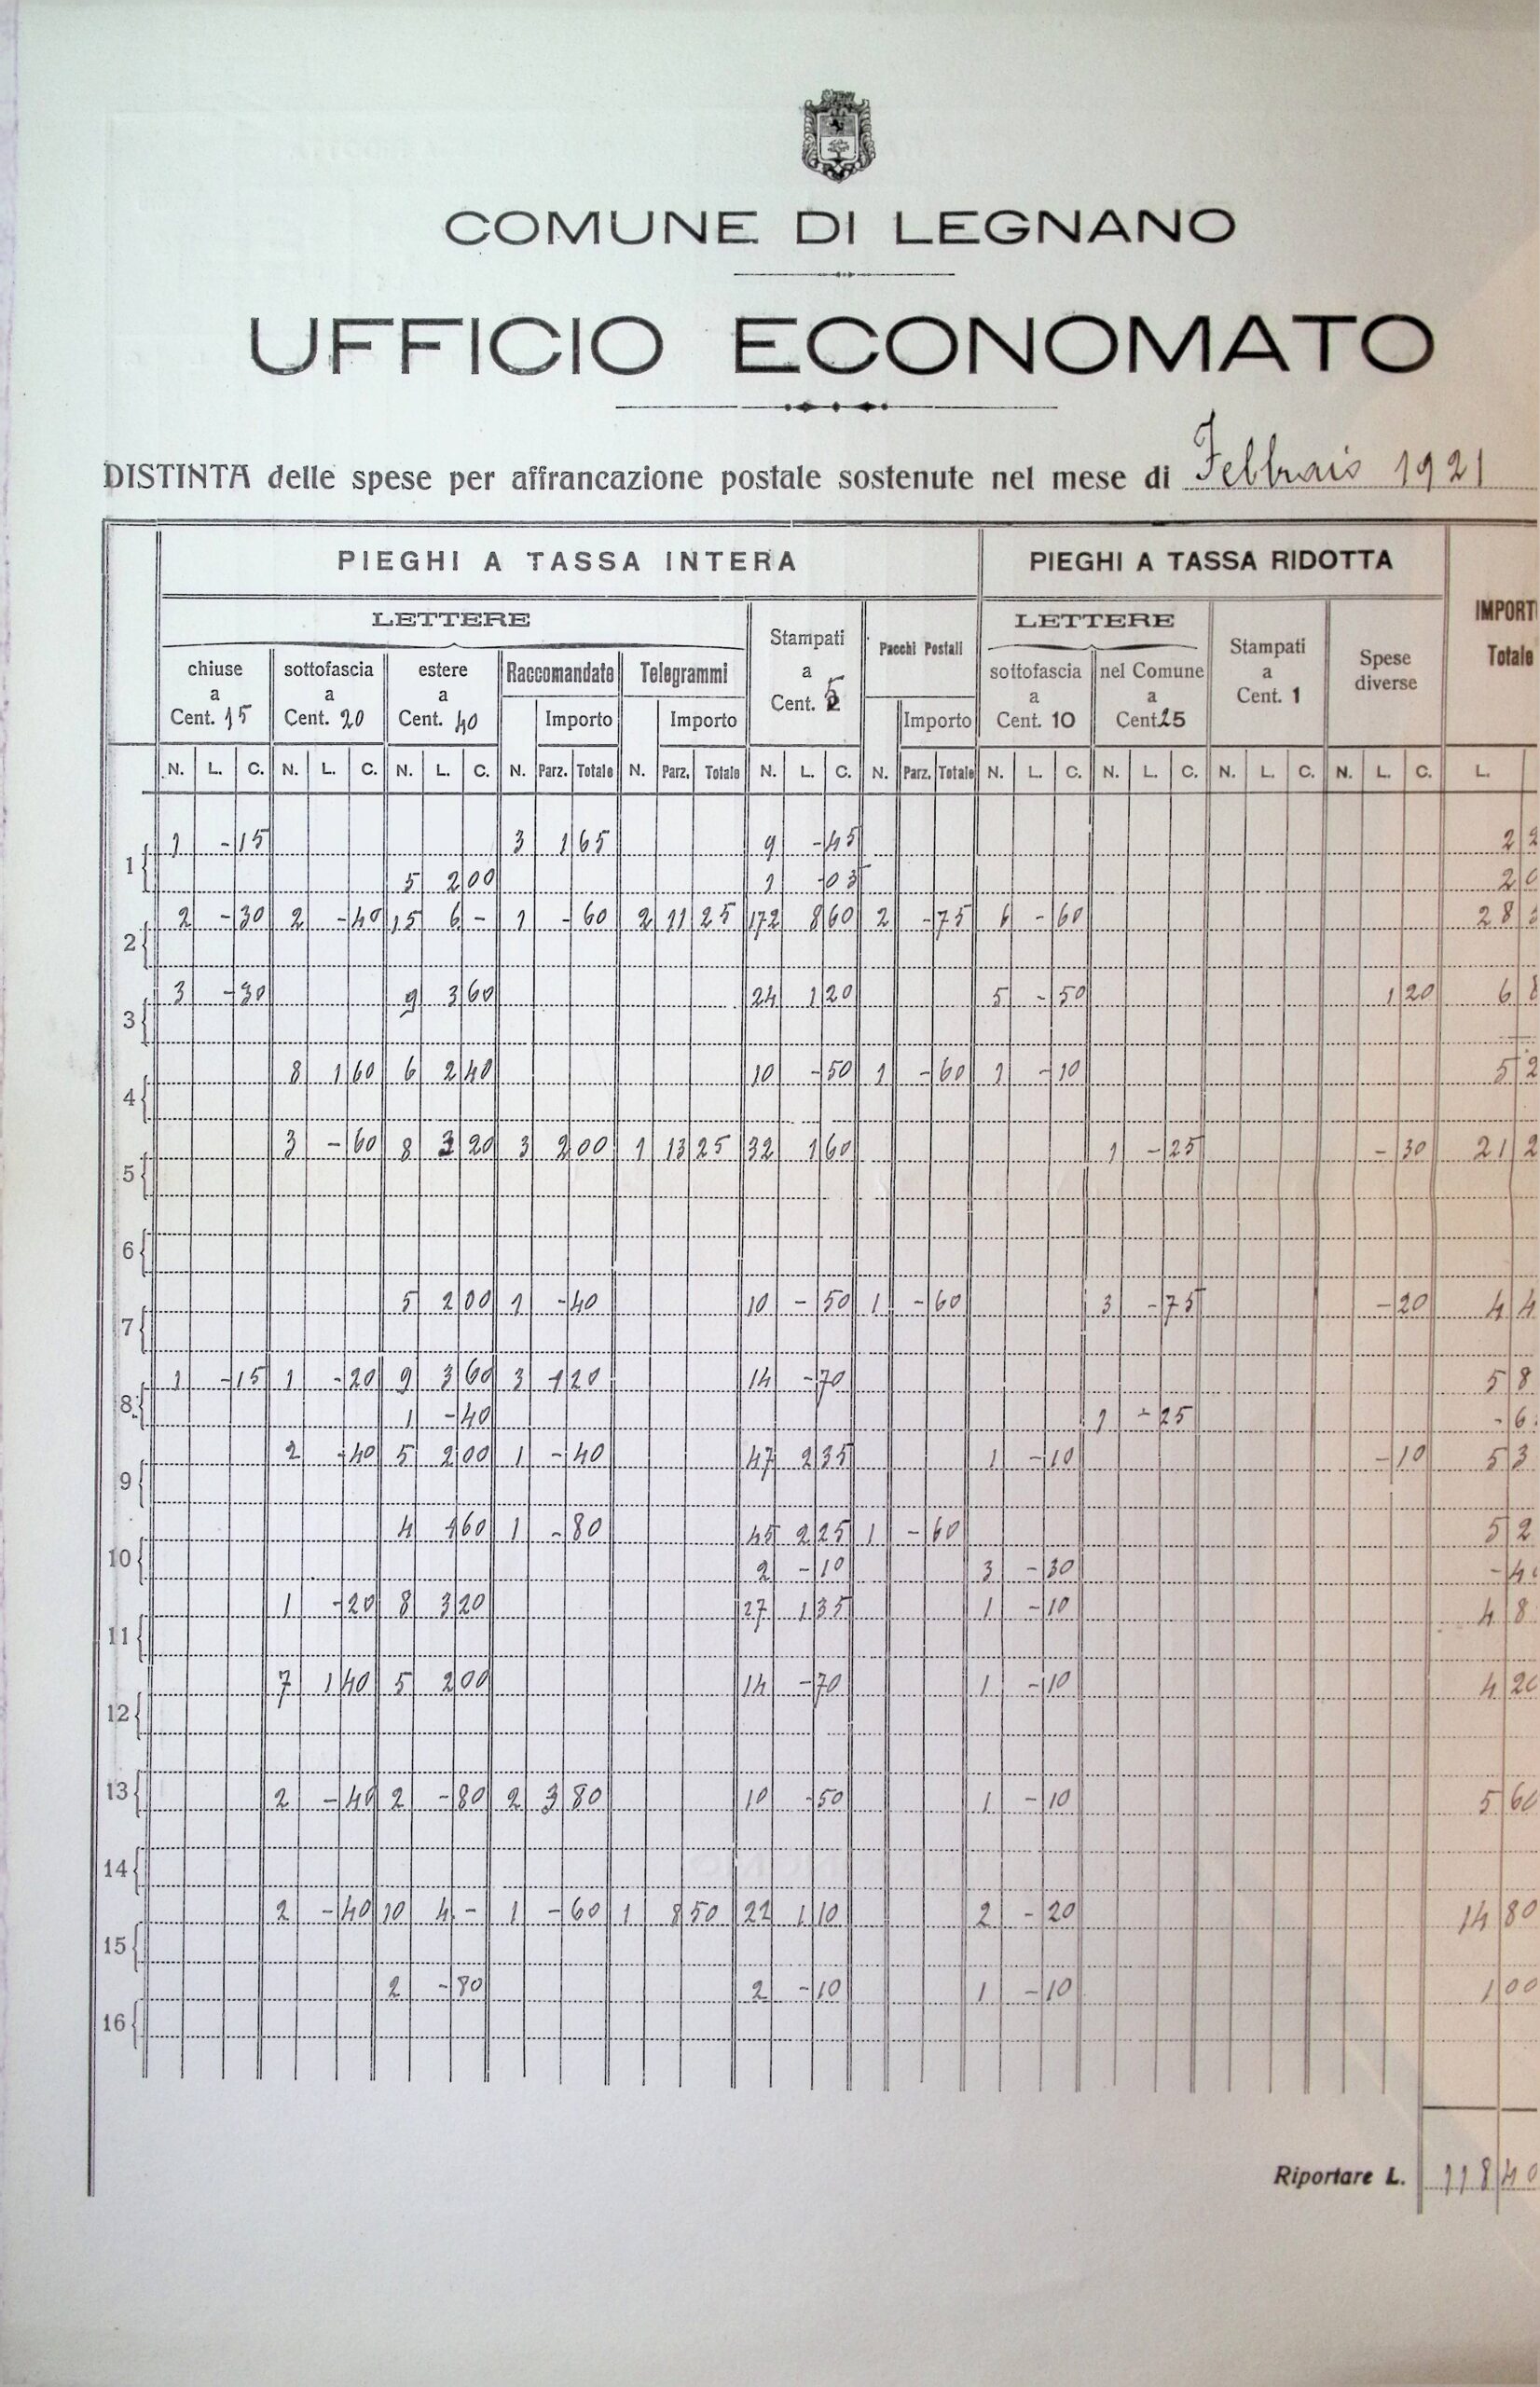 COMUNE DI LEGNANO
UFFICIO ECONOMATO
DISTINTA delle spese per affrancazione postale sostenute nel mese di Febbraio 1921
PIEGHI A TASSA INTERA PIEGHI A TASSA RIDOTTA IMPORT Totale
LETTERE Stampati a Cent. 5 Pacchi Postali LETTERE Stampati a Cent. 1 Spese diverse
chiuse a Cent. 15 sottofascia a Cent. 20 estere a Cent. 40 Raccomandate Telegrammi sottofascia a Cent. 10 nel Comune a Cent. 25
Importo Importo Importo
N. L. C. N. L. C. N. L. C. N. Parz. Totale N. Parz. Totale N. L. C. N. Parz. Totale N. L. C. N. L. C. N. L. C. N. L. C. L.
1 1 - 15 3 1 65 9 - 45 2 2
5 2 00 1 - 05 2 0
2 2 - 30 2 - 40 15 6 - 1 - 60 2 11 25 172 8 60 2 - 75 6 - 60 28
3 3 - 30 9 3 60 24 1 20 5 - 50 1 20 6 8
4 8 1 60 6 2 40 10 - 50 1 - 60 1 - 10 5 2
5 3 - 60 8 3 20 3 2 00 1 13 25 32 1 60 1 - 25 - 30 21 2
6
7 5 2 00 1 - 40 10 - 50 1 - 60 3 - 75 - 20 4 4
8 1 - 15 1 - 20 9 3 60 3 1 20 14 - 70 5 8
1 - 40 1 - 25 - 6
9 2 - 40 5 2 00 1 - 40 47 2 35 1 - 10 - 10 5 3
10 4 1 60 1 - 80 45 2 25 1 - 60 5 2
2 - 10 3 - 30 - 4
11 1 - 20 8 3 20 27 1 35 1 - 10 4 8
12 7 1 40 5 2 00 14 - 70 1 - 10 4 20
13 2 - 40 2 - 80 2 3 80 10 - 50 1 - 10 5 60
14
15 2 - 40 10 4 - 1 - 60 1 8 50 22 1 10 2 - 20 14 80
16 2 - 80 2 - 10 1 - 10 1 00
Riportare L. 118 40